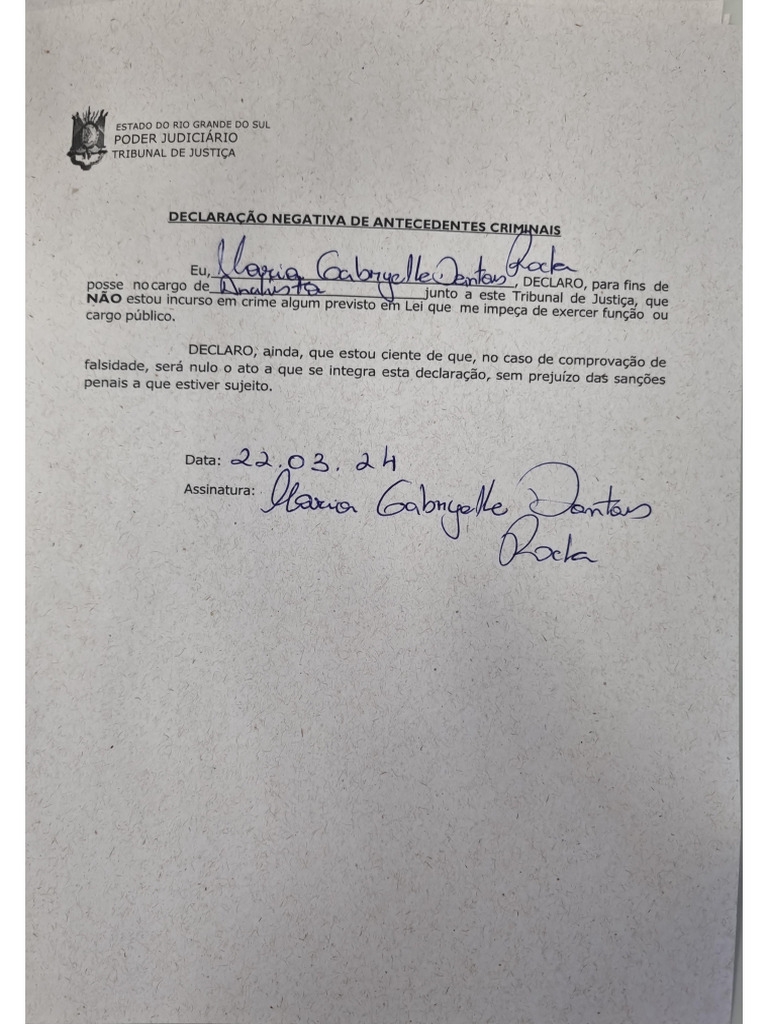 ESTADO DO RIO GRANDE DO SUL
PODER JUDICIÁRIO
TRIBUNAL DE JUSTIÇA
DECLARAÇÃO NEGATIVA DE ANTECEDENTES CRIMINAIS
Eu, Maria Gabryelle Dantas Rocha, DECLARO, para fins de
posse no cargo de Analista junto a este Tribunal de Justiça, que
NÃO estou incurso em crime algum previsto em Lei que me impeça de exercer função ou
cargo público.
DECLARO, ainda, que estou ciente de que, no caso de comprovação de
falsidade, será nulo o ato a que se integra esta declaração, sem prejuízo das sanções
penais a que estiver sujeito.
Data: 22.03.24
Assinatura: Maria Gabryelle Dantas
Rocha